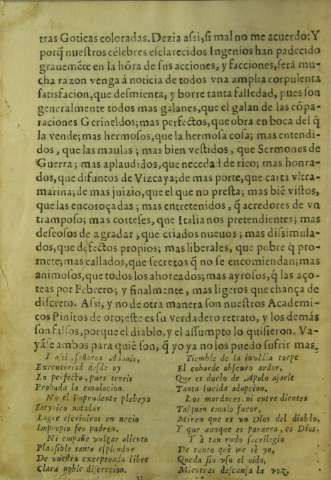 tras Goticas coloradas. Dezia assi, si mal no me acuerdo: Y
porq̃ nuestros célebres esclarecidos Ingenios han padecido
grauemẽte en la hora de sus acciones, y facciones, será mu-
cha razon venga à noticia de todos vna amplia corpulenta
satisfacion, que desmienta, y borre tanta falsedad, pues son
generalmente todos mas galanes, que el galan de las cõpa-
raciones Gerineldos; mas perfectos, que obra en boca del q̃
la vende; mas hermosos, que la hermosa cosa; mas entendi-
dos, que las maulas; mas bien vestidos, que Sermones de
Guerra; mas aplaudidos, que necedad de rico; mas honra-
dos, que difuntos de Vizcaya; de mas porte, que carta vltra-
marina; de mas juizio, que el que no presta; mas biẽ vistos,
que las encoroçadas; mas entretenidos, q̃ acredores de vn
tramposo; mas corteses, que Italianos pretendientes; mas
deseosos de agradar, que criados nueuos; mas dissimula-
dos, que defectos propios; mas liberales, que pobre q̃ pro-
mete; mas callados, que secretos q̃ no se encomiendan; mas
animosos, que todos los ahoteados; mas ayrosos, q̃ las aço-
teas por Febrero; y finalmente, mas ligeros que chança de
discreto. Assi, y no de otra manera son nuestros Academi-
cos Pinitos de oro; este es su verdadero retrato, y los demás
son falsos, porque el diablo, y el assumpto lo quisieron. Va-
yãse ambos para quiẽ son, q̃ yo ya no los puedo sufrir mas.
señores
Executoriad desde oy
En perfecto, pura
Probada la emulacion.
No el imprudente plebeyo
Satyrico
necio
Improprio feo padron.
Ni empañe vulgar aliento
Plausible tanto esplendor
De vuestra exceptuada libre
Clara noble discrecion.
Tiemble de la torpe
El cobarde obscuro ardor,
Que es duelo de Apolo ajarle
Tanta lucida adopcion.
Los mordaces, ni entre dientes
Tasquen
Miren que es vn Dios del diablo,
Y que aunque es
Y à tan rudo sacrilegio
De tanto que me
Queda sin
Mientras descansa la voz.